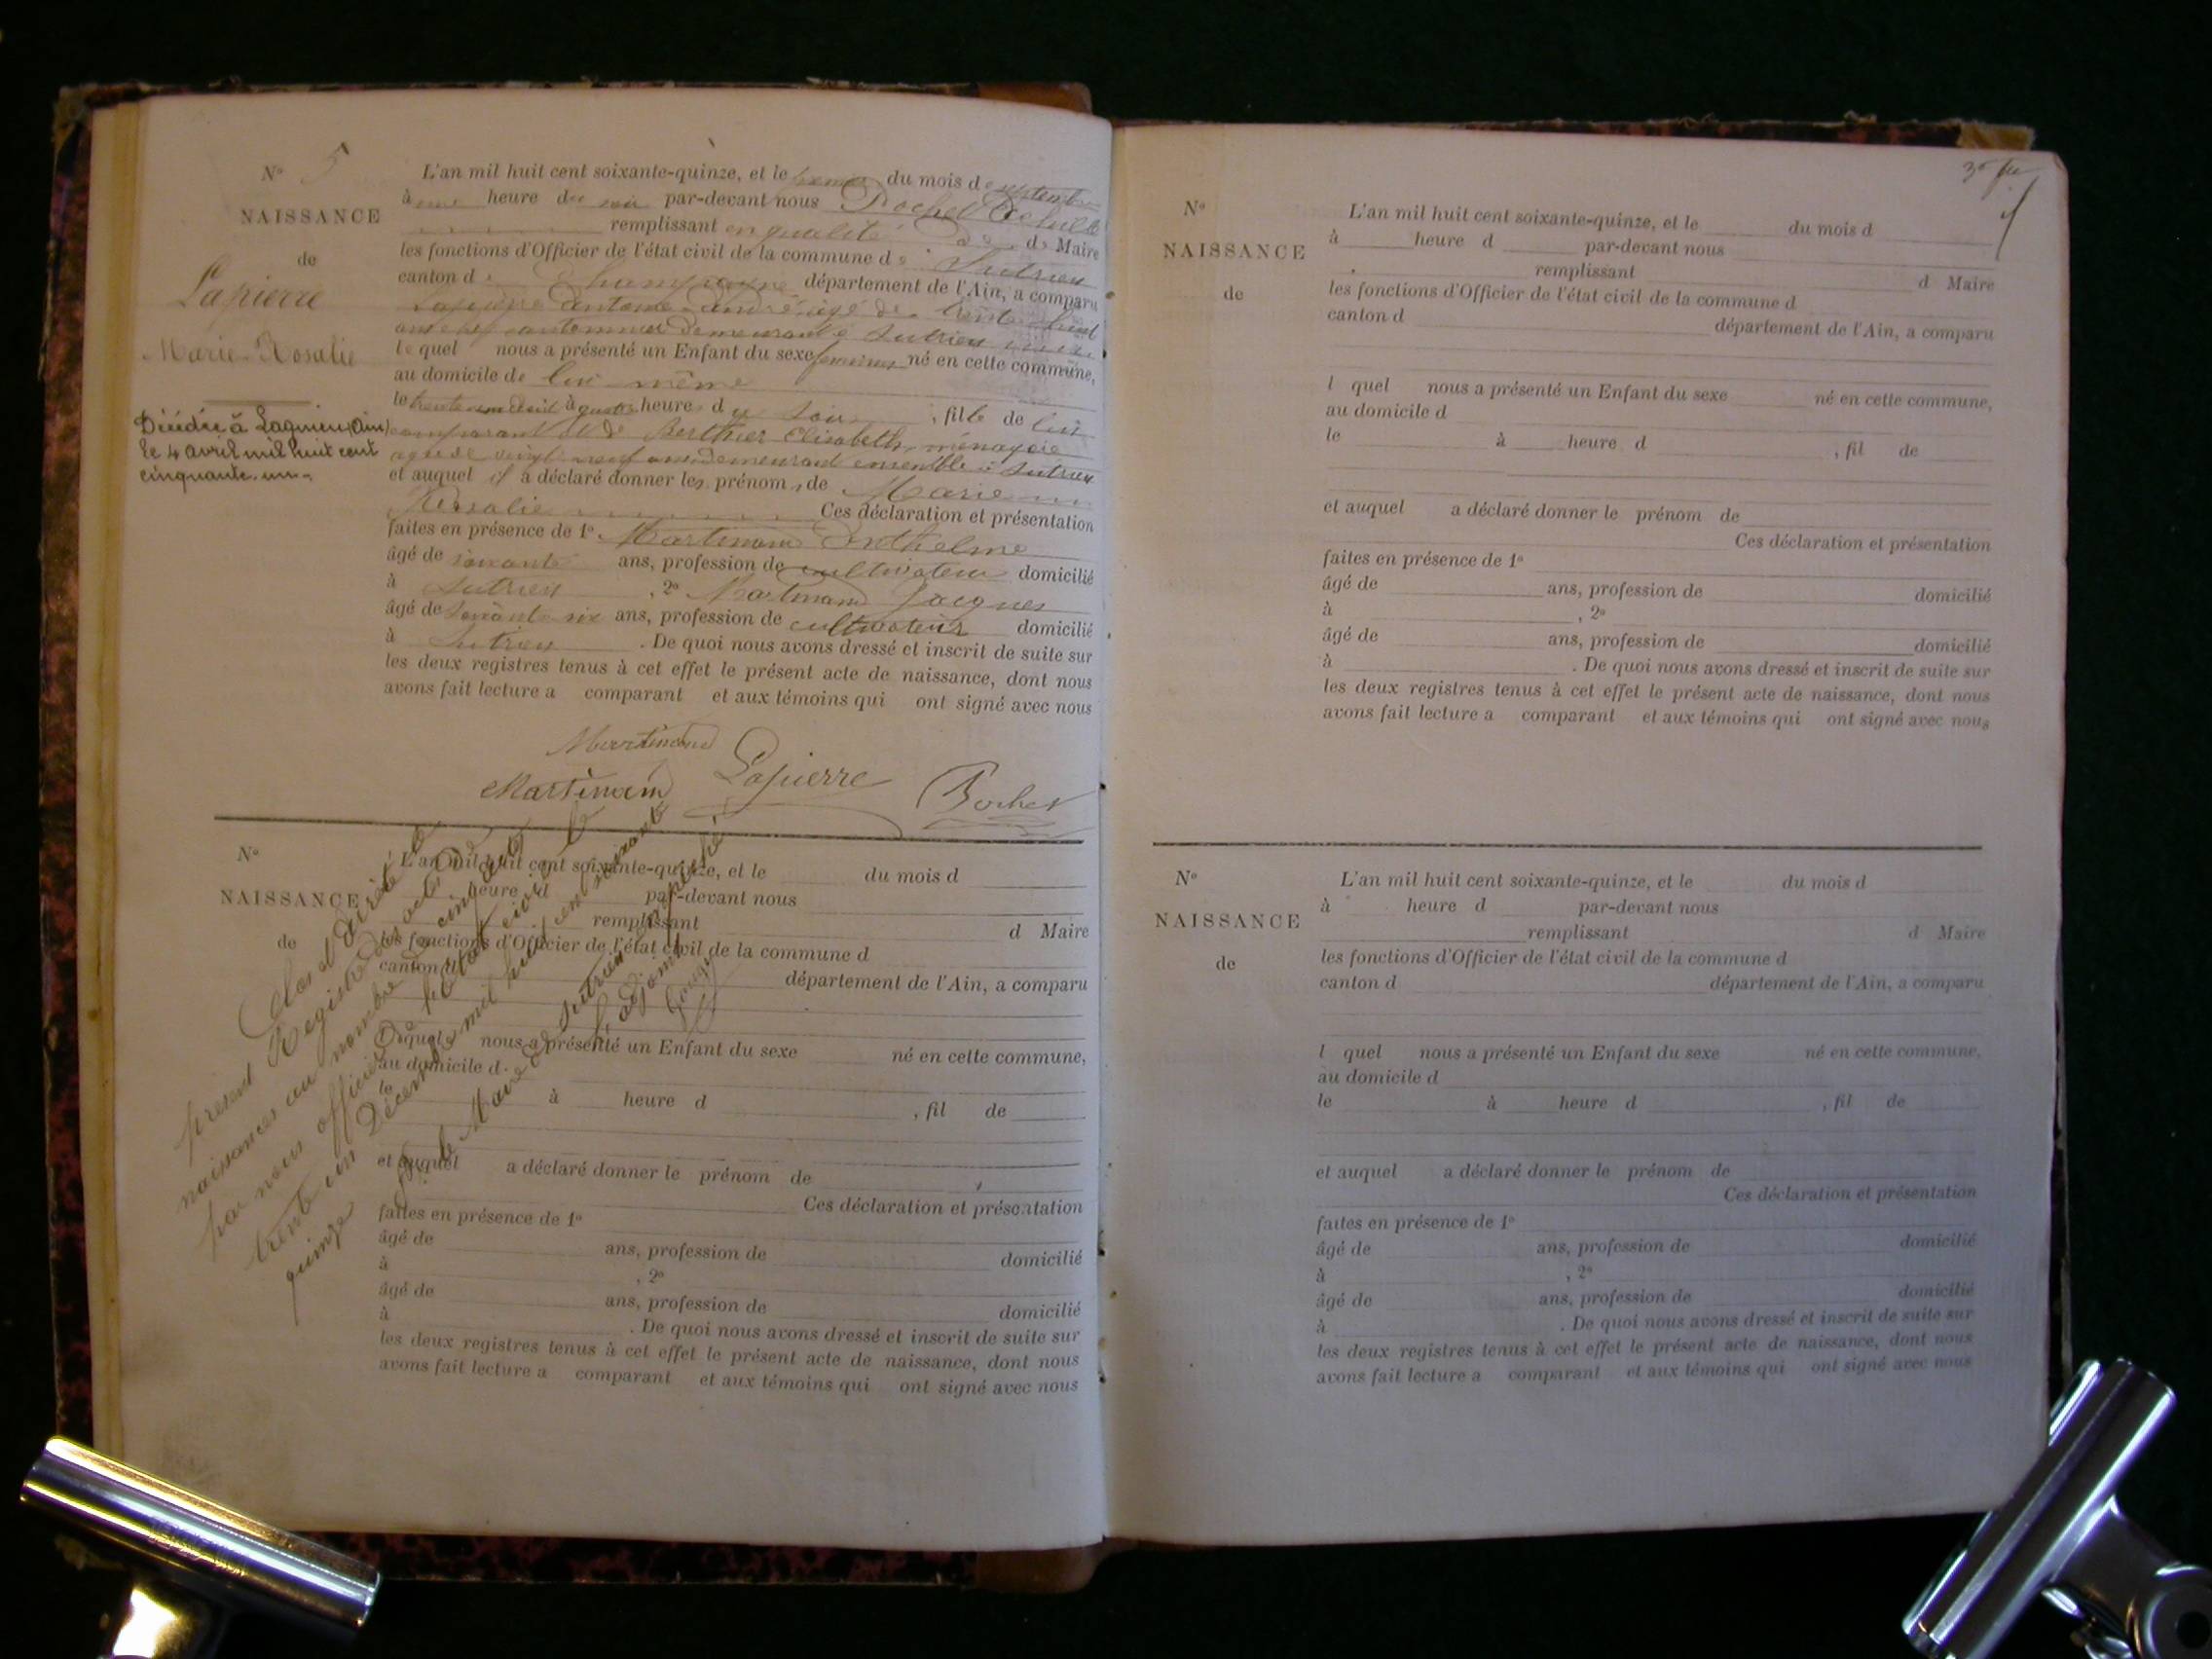 Nº 5
NAISSANCE
de
Lapierre
Marie-Rosalie
Décédée à Lagnieu (Ain)
le 4 avril mil huit cent
cinquante-un-
L'an mil huit cent soixante-quinze, et le premier du mois de septembre
à une heure du soir par-devant nous Bochet Achille
remplissant en qualité de de Maire
les fonctions d'Officier de l'état civil de la commune de Sutrieu
canton de Champagne département de l'Ain, a comparu
Lapierre Antoine André âgé de trente huit
ans chef cantonnier demeurant à Sutrieu
lequel nous a présenté un Enfant du sexe féminin né en cette commune,
au domicile de lui-même
le trente un août à quatre heures du soir, fille de lui
comparant et de Berthier Elisabeth, ménagère
agée de vingt neuf ans demeurant ensemble à Sutrieu
et auquel il a déclaré donner les prénoms de Marie
Rosalie Ces déclaration et présentation
faites en présence de 1º Martinand Anthelme
âgé de soixante ans, profession de cultivateur domicilié
à Sutrieu, 2º Martinand Jacques
âgé de soixante six ans, profession de cultivateur domicilié
à Sutrieu. De quoi nous avons dressé et inscrit de suite sur
les deux registres tenus à cet effet le présent acte de naissance, dont nous
avons fait lecture a comparant et aux témoins qui ont signé avec nous
Martinand
Martinand Lapierre Bochet
Nº
NAISSANCE
de
L'an mil huit cent soixante-quinze, et le du mois d
à heure d par-devant nous
remplissant d Maire
les fonctions d'Officier de l'état civil de la commune d
canton d
département de l'Ain, a comparu
l quel nous a présenté un Enfant du sexe né en cette commune,
au domicile d
le à heure d , fil de
et auquel a déclaré donner le prénom de
Ces déclaration et présentation
faites en présence de 1º
âgé de ans, profession de domicilié
à , 2º
âgé de ans, profession de domicilié
à . De quoi nous avons dressé et inscrit de suite sur
les deux registres tenus à cet effet le présent acte de naissance, dont nous
avons fait lecture a comparant et aux témoins qui ont signé avec nous
Clos et arrêté le
présent Registre des actes de
naissances au nombre de cinq
par nous officier de l'état civil le
trente un Décembre mil huit cent soixante
quinze
Le Maire de Sutrieu
l'adjoint
Nº
NAISSANCE
de
L'an mil huit cent soixante-quinze, et le du mois d
à heure d par-devant nous
remplissant d Maire
les fonctions d'Officier de l'état civil de la commune d
canton d département de l'Ain, a comparu
l quel nous a présenté un Enfant du sexe né en cette commune,
au domicile d
le à heure d , fil de
et auquel a déclaré donner le prénom de
Ces déclaration et présentation
faites en présence de 1º
âgé de ans, profession de domicilié
à , 2º
âgé de ans, profession de domicilié
à . De quoi nous avons dressé et inscrit de suite sur
les deux registres tenus à cet effet le présent acte de naissance, dont nous
avons fait lecture a comparant et aux témoins qui ont signé avec nous
Nº
NAISSANCE
de
L'an mil huit cent soixante-quinze, et le du mois d
à heure d par-devant nous
remplissant d Maire
les fonctions d'Officier de l'état civil de la commune d
canton d département de l'Ain, a comparu
l quel nous a présenté un Enfant du sexe né en cette commune,
au domicile d
le à heure d , fil de
et auquel a déclaré donner le prénom de
Ces déclaration et présentation
faites en présence de 1º
âgé de ans, profession de domicilié
à , 2º
âgé de ans, profession de domicilié
à . De quoi nous avons dressé et inscrit de suite sur
les deux registres tenus à cet effet le présent acte de naissance, dont nous
avons fait lecture a comparant et aux témoins qui ont signé avec nous